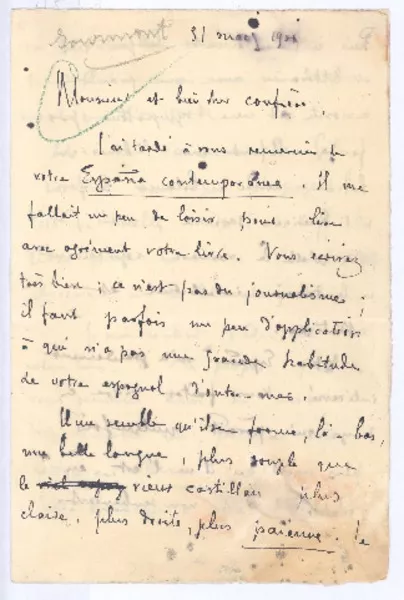 Gourmont 31 mars 1901
Monsieur et bien cher confrère,
J'ai tardé à vous remercier de
votre España contemporánea. Il me
fallait un peu de loisir pour lire
avec agrément votre livre. Vous écrivez
très bien ; ce n'est pas du journalisme ;
il faut parfois un peu d'application
à qui n'a pas une grande habitude
de votre espagnol d'outre-mer.
Il me semble qu'il se forme, là-bas,
une belle langue, plus souple que
le vieux castillan plus
claire, plus droite, plus païenne. Je